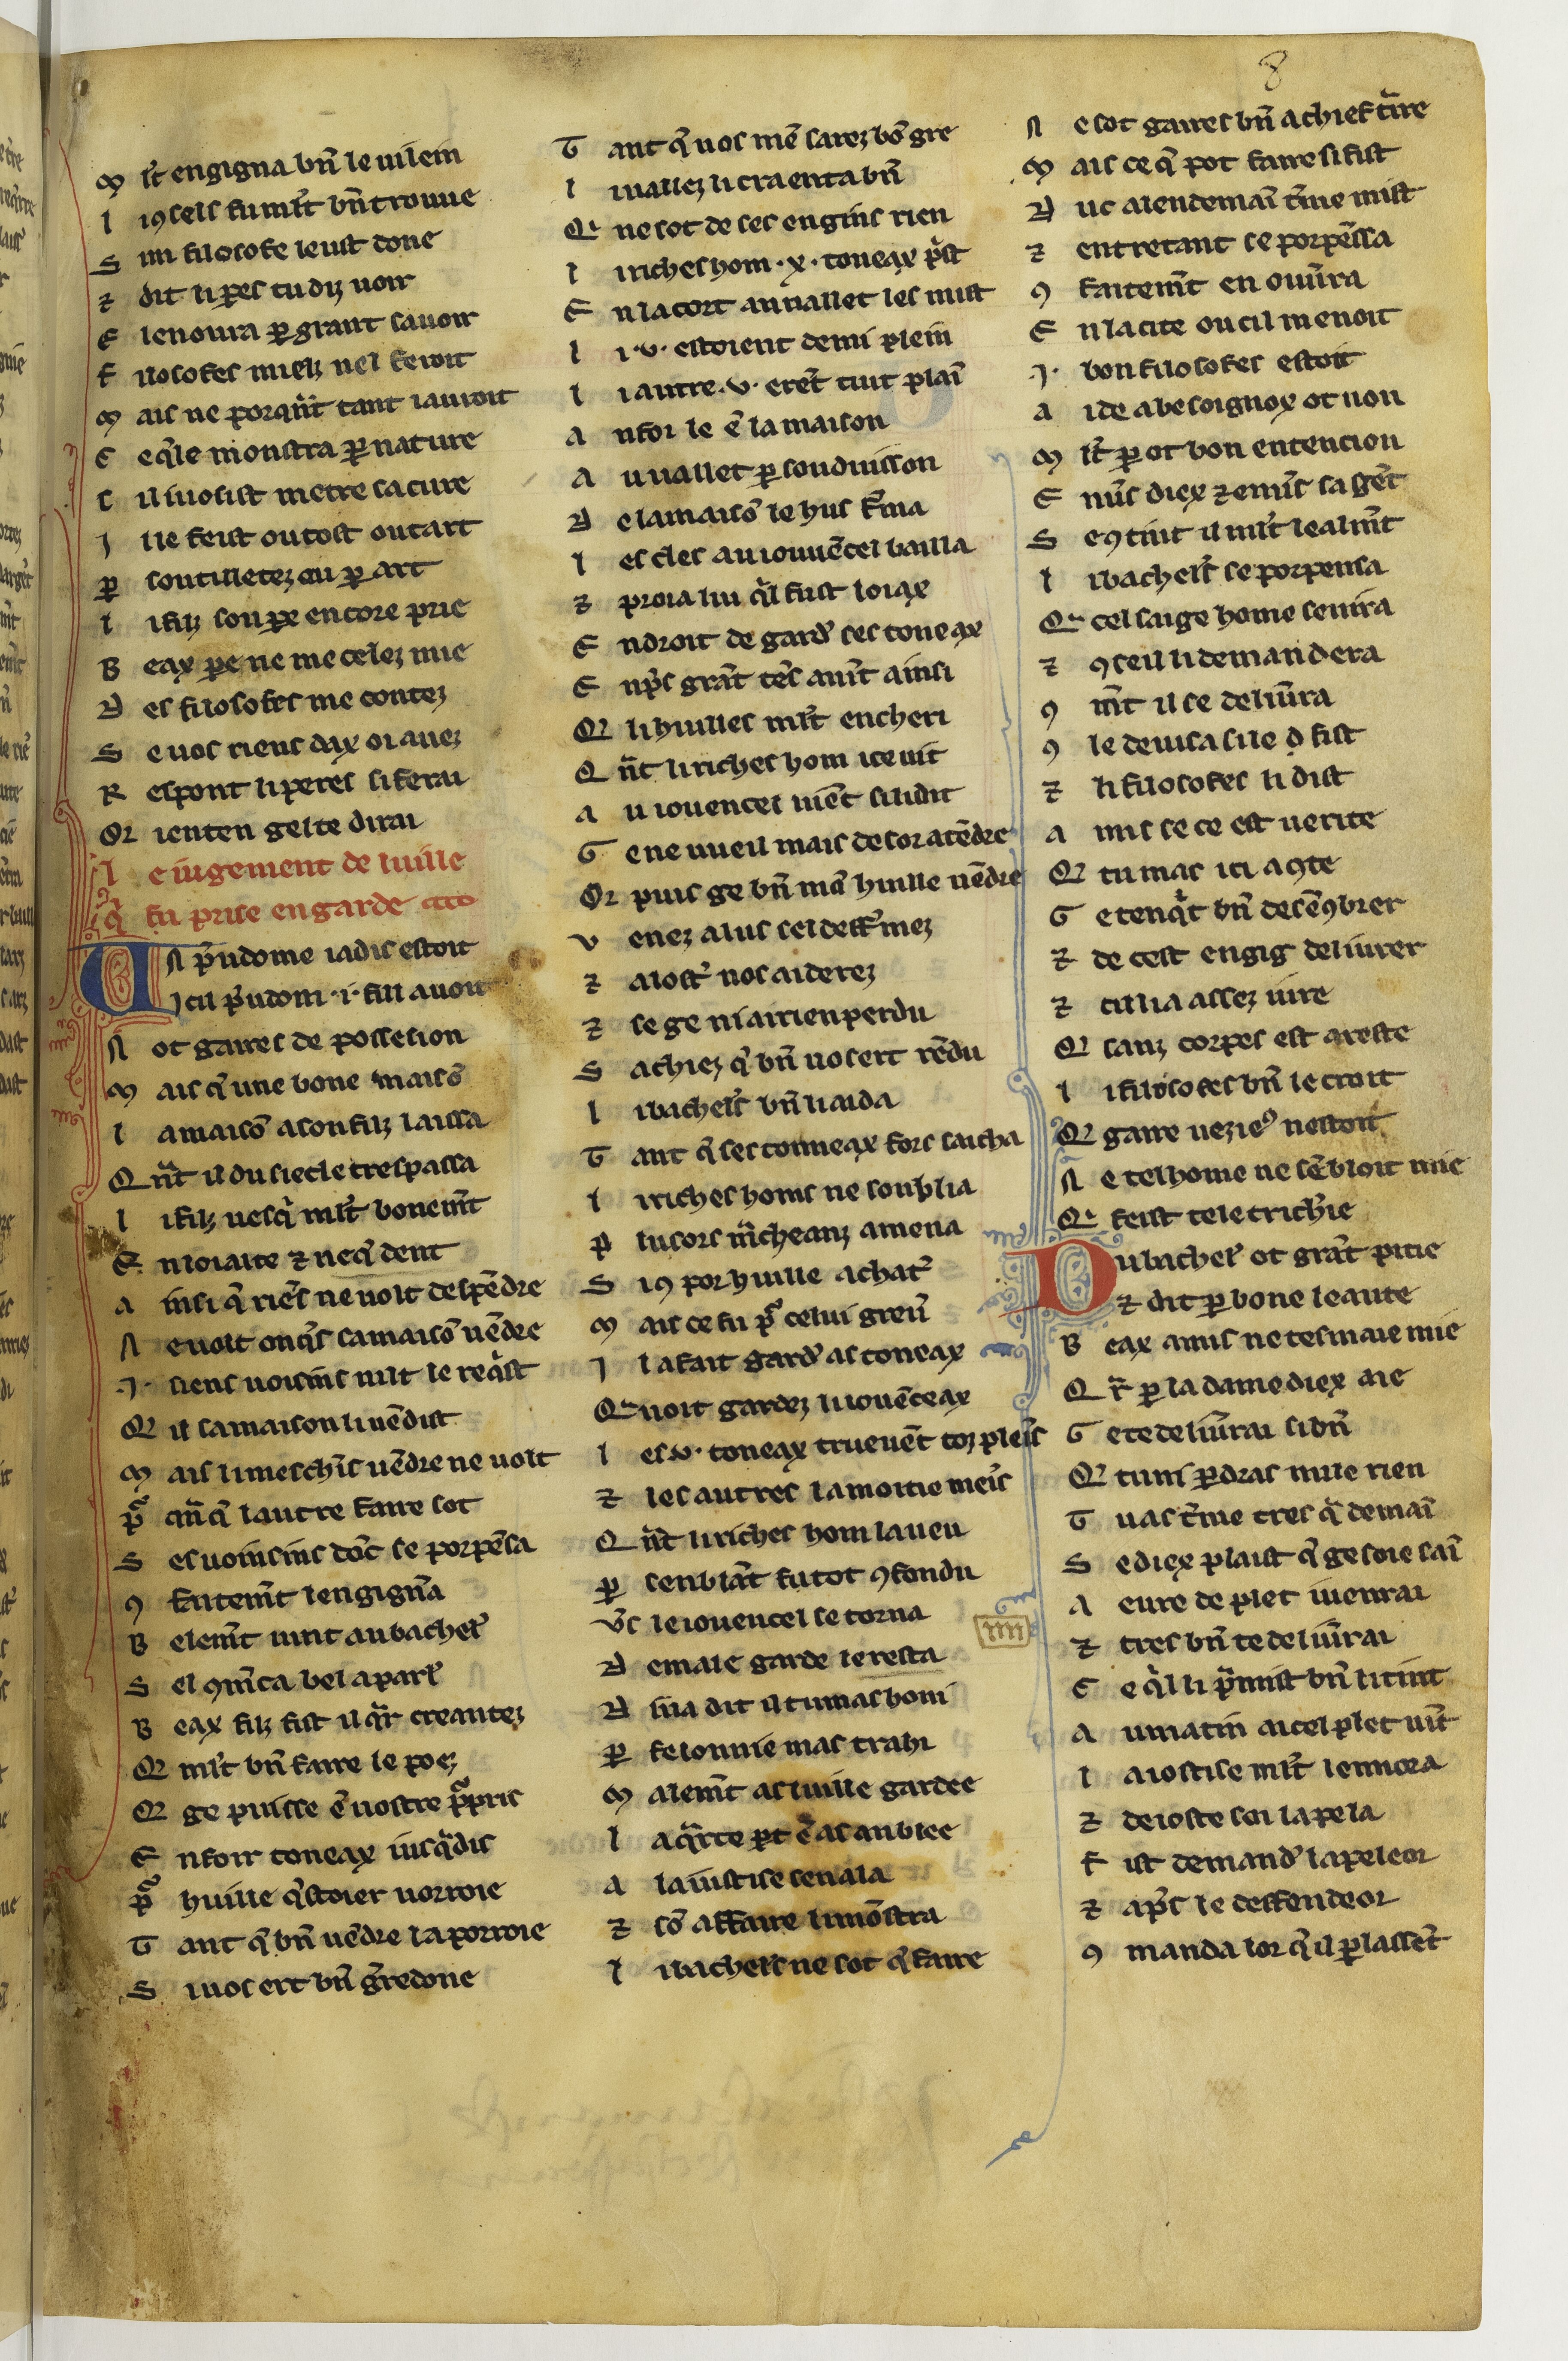 8
M lt̄ engigna bn̄ le uilein
l iꝯsels fu mlt̄ bn̄ trouue
S un filosofe leust done
⁊ dit li p̄es tu diz uoir
E lenoura ꝑ grant sauoir
F ilosofes mielz nel feroit
M ais ne porqn̄t tant i auroit
C e qͥle monstra ꝑ nature
C il iuosist metre sa cure
J lle feist ou tost ou tart
P soutilletez ou ꝑ art
L i filz son pe encore prie
B eax pe ne me celez mie
D es filosofes me contez
S e uos riens dax oi auez
R espont li peres si ferai
Or ienten gel te dirai
L e iugement de luille
q̄ fu prise en garde
Un p̄udome iadis estoit
Icil p̄udom .i. fill auoit
N ot gaires de possession
M ais qͥ une bone maisō
L a maisō a son filz laissa
Q n̄t il du siecle trespassa
L i filz uesqͥ mlt̄ bonemt̄
E n loiaute ⁊ neqͥdent
A insi qͥ riēs ne uolt despēdre
N e uolt onqͥs sa maisō uēdre
.I. siens uoisins mlt le reqͥst
Q il sa maison li uēdist
M ais li meschīs uēdre ne uolt
P cān qͥ lautre faire sot
S es uoisins dōc se porpēsa
ꝯ faitemt̄ lengign̄a
B elemt̄ uint au bachel'
S el ꝯm̄ca bel a parl'
B eax filz fist il qr̄ creantez
Q mlt̄ bn̄ faire le poez
Q ge puisse ē uostre ꝓpris
E nfoir toneax iusqͣdis
P huille qͥstoier uorroie
T ant qͥ bn̄ uēdre la porroie
S iuos ert bn̄ gr̄redone
T ant qͥ uos mē sarez bō gre
L iuallez li craenta bn̄
Q ne sot de ses engins rien
L i riches hom .x. toneax pͥst
E n la cort au uallet les mist
L i .v. estoient demi plein
L i autre .v. erēt tuit plaī
A nfoi le ē la maison
A u uallet ꝑ souduisson
D e la maisō le hus f̄ma
L es cles au iouuēcel bailla
⁊ proia lui qͥl fust loiax
E ndroit de gard' ses toneax
E np̄s grāt tēs auīt ainsi
Q li huilles mlt̄ encheri
Q n̄t li riches hom ice uit
A u iouencel uiēt si li dit
G e ne uueil mais desor atēdre
Or puis ge bn̄ mā huille uēdre
V enez a lus sel deff̄mez
⁊ a lost' nos aiderez
⁊ se ge ni ai rien perdu
S achiez qͥ bn̄ uos ert rēdu
L i bachel's bn̄ li aida
T ant qͥ ses tonneax fors saicha
L i riches homs ne soublia
P lusors m̄cheanz amena
S iꝯ por huille achat'
M ais ce fu p̄ celui greu'
J l a fait gard' as toneax
Q uoit gardez li iouēceax
L es .v. toneax truuēt toz pleīs
⁊ les autres la moitie meīs
Q n̄t li riches hom la ueu
P senblāt fu tot ꝯfondu
V̄s le iouencel se torna
D emale garde le resta
D iua dit il tu mas honi
P felonnie mas trahi
M alemt̄ as luille gardee
L a qͣrte pt ē as anblee
A la iustise sen ala
⁊ sō affaire li mōstra
L i bachel's ne sot qͥ faire
N e sot gaires bn̄ a chief t̄re
M ais ce qͥ pot faire si fist
D us a lendemaī t̄me mist
⁊ entretant se porpēssa
ꝯ faitemt̄ en ouu̅ra
E n la cite ou cil menoit
.I. bon filosofes estoit
A ide a besoignox ot non
M lt̄ ꝑ ot bon entencion
E nu̅s diex ⁊ emu̅s sa gēt
S e ꝯtint il mlt̄ lealmt̄
L i bachel's se porpensa
Q cel saige home senira
⁊ ꝯseil li demandera
ꝯ m̄t il se deliu̅ra
ꝯ le deuisa si le ꝑfist
⁊ li filosofes li dist
A mis se ce est uerite
Q tu mas ici aꝯte
G e tenqͥt bn̄ desēꝯbrer
⁊ de cest engig deliurer
⁊ cil li a assez iure
Q sanz corpes est areste
L i filosofes bn̄ le croit
Q gaire uezieꝰ nestoit
N e tel home ne sēbloit mie
Q feist tele trich'ie
Du bachel' ot grāt pitie
⁊ dit ꝑ bone leaute
B eax amis ne tesmaie mie
Q r̄ ꝑ la damediex aie
G e te deliu̅rai si bn̄
Q tu ni ꝑdras mie rien
T u as t̄me tres qͥ demaī
S e diex plaist qͥ ge soie saī
A eure de plet iuenrai
⁊ tres bn̄ te deliu̅rai
C e qͥl li pͣmist bn̄ li tint
A u matin au cel plet uīt
L a iostise mlt̄ lennora
⁊ de ioste soi lapela
F ist demand' lapeleor
⁊ ap̄s le deffendeor
ꝯ manda lor qͥ il ꝑlassēt